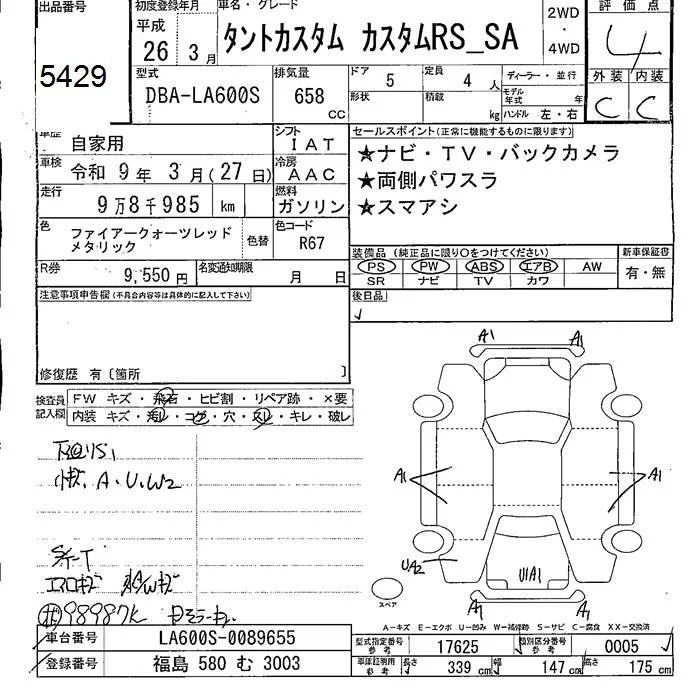 出品番号
5429
初度登録年月
平成
26年 3月
車名・グレード
タントカスタム カスタムRS_SA
2WD
・
4WD
評価点
4
外装 内装
C C
型式
DBA-LA600S
排気量
658 CC
ドア 5
形状
定員 4 人
積載 kg
ディーラー・並行
モデル年式 年
ハンドル 左・右
車歴 自家用
シフト IAT
車検 令和 9年 3月(27日)
冷房 AAC
走行 9万8千985 km
燃料 ガソリン
色 ファイアークォーツレッド
メタリック
色替
色コード R67
R券 9,550円
名変通知期限 月 日
セールスポイント(正常に機能するものに限ります)
★ナビ・TV・バックカメラ
★両側パワスラ
★スマアシ
装備品(純正品に限り○をつけてください)
新車保証書
PS PW ABS エアB AW
SR ナビ TV カワ
有・無
後日品
注意事項申告欄(不具合内容等は具体的に記入して下さい)
修復歴 有〔箇所 〕
検査員記入欄
FW キズ・飛石・ヒビ割・リペア跡・×要
内装 キズ・汚レ・コゲ・穴・スレ・キレ・破レ
A・U・W2
エアロキズ
98987K
A1 A1
A1 A1
UA2
U1A1
A1 A1
スペア
A−キズ E−エクボ U−凹み W−補修跡 S−サビ C−腐食 XX−交換済
車台番号 LA600S-0089655
登録番号 福島 580 む 3003
型式指定番号 参考 17625
類別区分番号 参考 0005
車庫証明用 参考 長さ 339 cm 幅 147 cm 高さ 175 cm